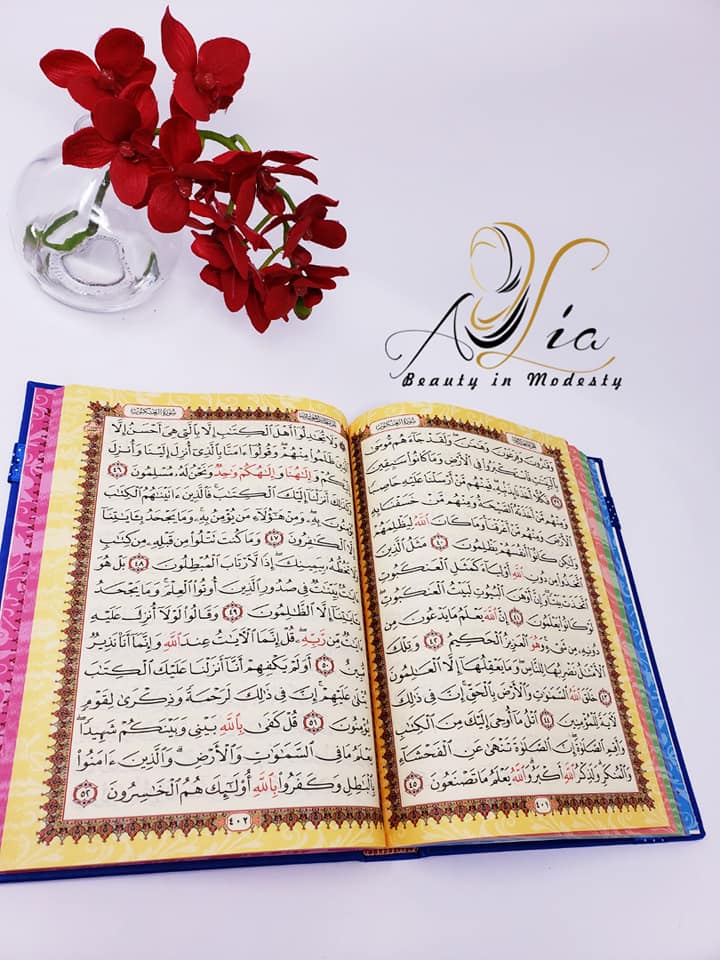 AYLia
Beauty in Modesty
سُورَةُ العَنكَبُوتِ
وَقَٰرُونَ وَفِرْعَوْنَ وَهَٰمَٰنَ ۖ وَلَقَدْ جَآءَهُم مُّوسَىٰ
بِٱلْبَيِّنَٰتِ فَٱسْتَكْبَرُوا۟ فِى ٱلْأَرْضِ وَمَا كَانُوا۟ سَٰبِقِينَ
٣٩ فَكُلًّا أَخَذْنَا بِذَنۢبِهِۦ ۖ فَمِنْهُم مَّنْ أَرْسَلْنَا عَلَيْهِ حَاصِبًا
وَمِنْهُم مَّنْ أَخَذَتْهُ ٱلصَّيْحَةُ وَمِنْهُم مَّنْ خَسَفْنَا بِهِ
ٱلْأَرْضَ وَمِنْهُم مَّنْ أَغْرَقْنَا ۚ وَمَا كَانَ ٱللَّهُ لِيَظْلِمَهُمْ
وَلَٰكِن كَانُوٓا۟ أَنفُسَهُمْ يَظْلِمُونَ ٤٠ مَثَلُ ٱلَّذِينَ
ٱتَّخَذُوا۟ مِن دُونِ ٱللَّهِ أَوْلِيَآءَ كَمَثَلِ ٱلْعَنكَبُوتِ
ٱتَّخَذَتْ بَيْتًا ۖ وَإِنَّ أَوْهَنَ ٱلْبُيُوتِ لَبَيْتُ ٱلْعَنكَبُوتِ ۖ
لَوْ كَانُوا۟ يَعْلَمُونَ ٤١ إِنَّ ٱللَّهَ يَعْلَمُ مَا يَدْعُونَ مِن
دُونِهِۦ مِن شَىْءٍ ۚ وَهُوَ ٱلْعَزِيزُ ٱلْحَكِيمُ ٤٢ وَتِلْكَ
ٱلْأَمْثَٰلُ نَضْرِبُهَا لِلنَّاسِ ۖ وَمَا يَعْقِلُهَآ إِلَّا ٱلْعَٰلِمُونَ
٤٣ خَلَقَ ٱللَّهُ ٱلسَّمَٰوَٰتِ وَٱلْأَرْضَ بِٱلْحَقِّ ۚ إِنَّ فِى ذَٰلِكَ
لَءَايَةً لِّلْمُؤْمِنِينَ ٤٤ ٱتْلُ مَآ أُوحِىَ إِلَيْكَ مِنَ ٱلْكِتَٰبِ
وَأَقِمِ ٱلصَّلَوٰةَ ۖ إِنَّ ٱلصَّلَوٰةَ تَنْهَىٰ عَنِ ٱلْفَحْشَآءِ
وَٱلْمُنكَرِ ۗ وَلَذِكْرُ ٱللَّهِ أَكْبَرُ ۗ وَٱللَّهُ يَعْلَمُ مَا تَصْنَعُونَ ٤٥
٤٠١
سُورَةُ العَنكَبُوتِ
وَلَا تُجَٰدِلُوٓا۟ أَهْلَ ٱلْكِتَٰبِ إِلَّا بِٱلَّتِى هِىَ أَحْسَنُ إِلَّا
ٱلَّذِينَ ظَلَمُوا۟ مِنْهُمْ ۖ وَقُولُوٓا۟ ءَامَنَّا بِٱلَّذِىٓ أُنزِلَ إِلَيْنَا وَأُنزِلَ
إِلَيْكُمْ وَإِلَٰهُنَا وَإِلَٰهُكُمْ وَٰحِدٌ وَنَحْنُ لَهُۥ مُسْلِمُونَ ٤٦
وَكَذَٰلِكَ أَنزَلْنَآ إِلَيْكَ ٱلْكِتَٰبَ ۚ فَٱلَّذِينَ ءَاتَيْنَٰهُمُ ٱلْكِتَٰبَ
يُؤْمِنُونَ بِهِۦ ۖ وَمِنْ هَٰٓؤُلَآءِ مَن يُؤْمِنُ بِهِۦ ۚ وَمَا يَجْحَدُ بِـَٔايَٰتِنَآ
إِلَّا ٱلْكَٰفِرُونَ ٤٧ وَمَا كُنتَ تَتْلُوا۟ مِن قَبْلِهِۦ مِن كِتَٰبٍ
وَلَا تَخُطُّهُۥ بِيَمِينِكَ ۖ إِذًا لَّٱرْتَابَ ٱلْمُبْطِلُونَ ٤٨ بَلْ هُوَ
ءَايَٰتٌۢ بَيِّنَٰتٌ فِى صُدُورِ ٱلَّذِينَ أُوتُوا۟ ٱلْعِلْمَ ۚ وَمَا يَجْحَدُ
بِـَٔايَٰتِنَآ إِلَّا ٱلظَّٰلِمُونَ ٤٩ وَقَالُوا۟ لَوْلَآ أُنزِلَ عَلَيْهِ
ءَايَٰتٌ مِّن رَّبِّهِۦ ۖ قُلْ إِنَّمَا ٱلْءَايَٰتُ عِندَ ٱللَّهِ وَإِنَّمَآ أَنَا۠ نَذِيرٌ
مُّبِينٌ ٥٠ أَوَلَمْ يَكْفِهِمْ أَنَّآ أَنزَلْنَا عَلَيْكَ ٱلْكِتَٰبَ
يُتْلَىٰ عَلَيْهِمْ ۚ إِنَّ فِى ذَٰلِكَ لَرَحْمَةً وَذِكْرَىٰ لِقَوْمٍ
يُؤْمِنُونَ ٥١ قُلْ كَفَىٰ بِٱللَّهِ بَيْنِى وَبَيْنَكُمْ شَهِيدًا ۖ
يَعْلَمُ مَا فِى ٱلسَّمَٰوَٰتِ وَٱلْأَرْضِ ۗ وَٱلَّذِينَ ءَامَنُوا۟
بِٱلْبَٰطِلِ وَكَفَرُوا۟ بِٱللَّهِ أُو۟لَٰٓئِكَ هُمُ ٱلْخَٰسِرُونَ ٥٢
٤٠٢